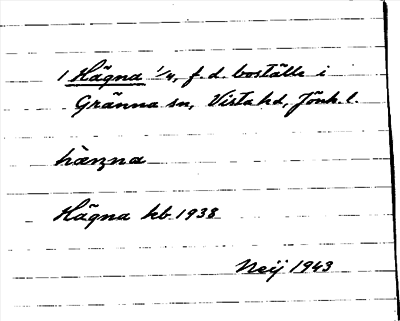 1 Hägna 1/4, f.d. boställe i
Gränna sn, Vista hd, Jönk. l.
hæŋna
Hägna kb 1938
Neij 1943